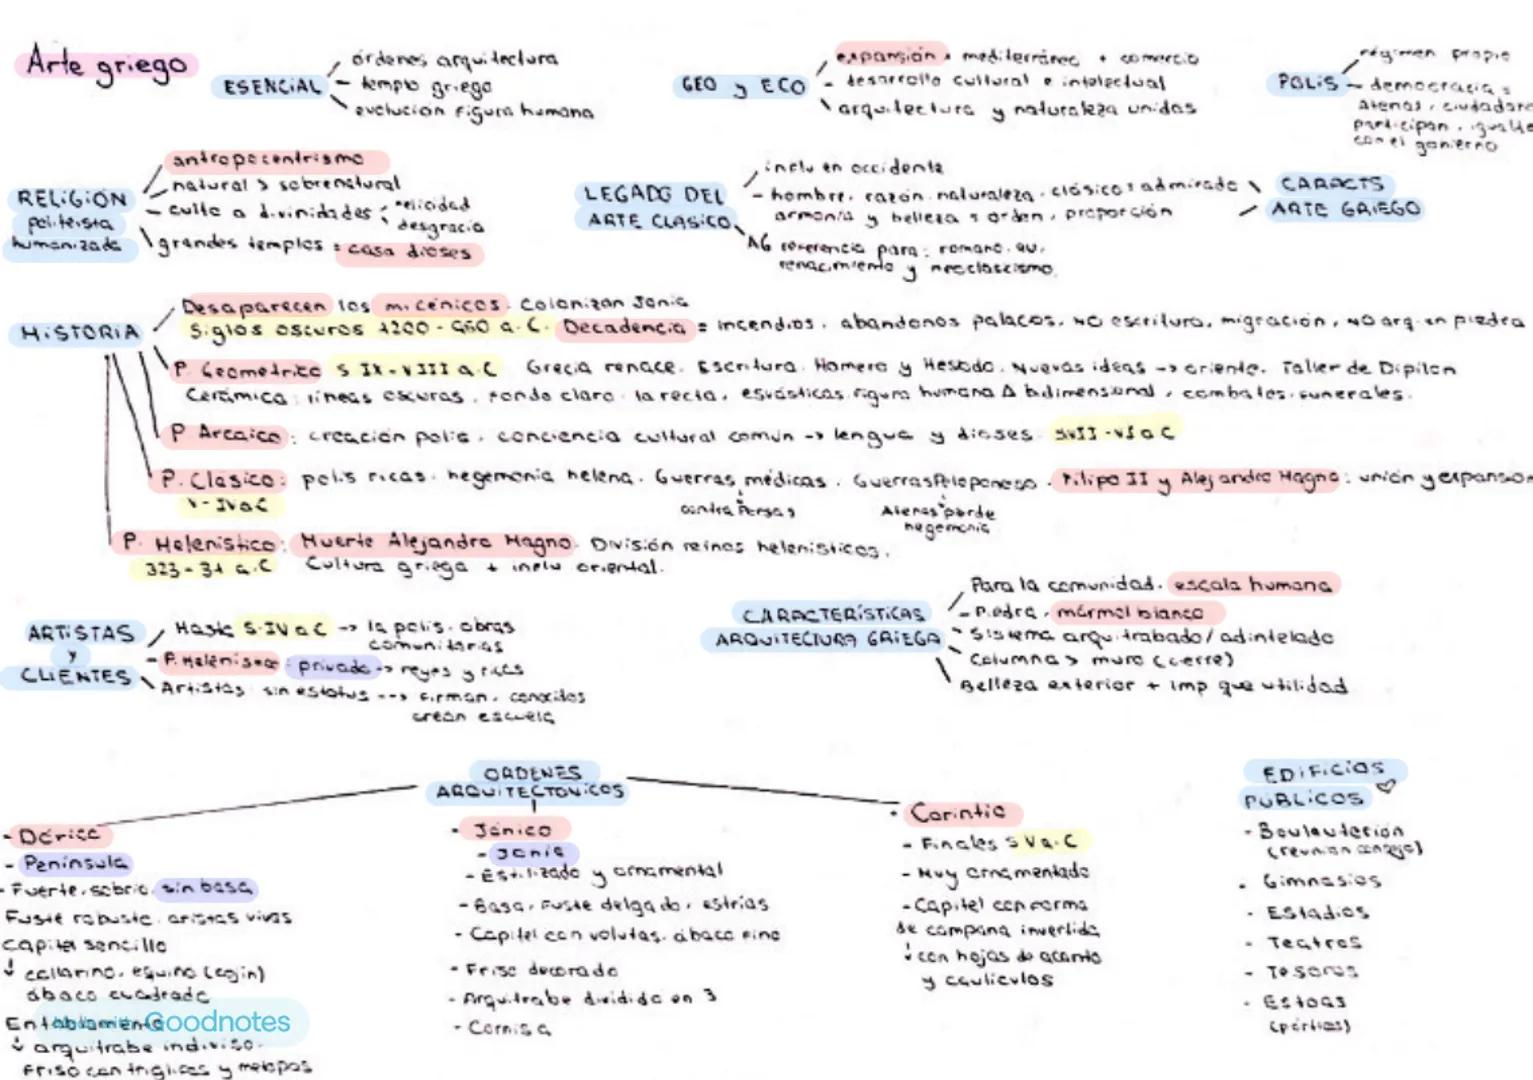 Arte griego
ESENCIAL
órdenes arquitectura
- templo griego
evolución figura humana
GEO y ECO
expansión · mediterráneo + comercio
- desarrollo cultural e intelectual
arquitectura y naturaleza unidas
POLIS
régimen propio
- democracia:
Atenas, ciudadano
participan,
con el gonierno
RELIGIÓN
politeista
humanizada
antropocentrismo
natural > sobrenatural
- culto a divinidades
felicidad
desgracia
grandes templos = casa dioses
LEGADO DEL
ARTE CLASICO
influ en occidente
- hombre, razón, naturaleza, clásico: admirado
armonía y belleza = orden, proporción
AG referencia para: romano,
renacimiento y neoclascismo.
CARACTS
ARTE GRIEGO
HISTORIA
Desaparecen los micénicos. Colonizan Jonia
Siglos oscuros 1200 - 950 a.C. Decadencia = incendios, abandonos palacos, NO escritura, migración, NO arq en piedra
P. Geometrico S IX - VIII a.C Grecia renace. Escritura. Homero y Hesiodo. Nuevas ideas -> oriente. Taller de Dipilon
Cerámica: líneas oscuras, fondo claro. la recta, esvásticas, figura humana Δ bidimensional, combates, funerales.
P. Arcaico: creación polis, conciencia cultural común -> lengua y dioses. SVII - VI a C
P. Clasico: polis ricas, hegemonía helena. Guerras médicas. Guerras Peloponeso. Filipo II y Alejandro Magno: unión y expansion
V - IV a C
contra Persas
Atenas pierde
hegemonia
P. Helenistico: Muerte Alejandro Magno. División reinos helenisticos.
323 - 31 a.C Cultura griega + influ oriental.
ARTISTAS
y
CLIENTES
Hasta S.IV a C -> la polis. obras
comunitarias
- P. Helenismo: privado -> reyes y ricos
Artistas sin estatus --> firman, conocidos
crean escuela
CARACTERÍSTICAS
ARQUITECTURA GRIEGA
Para la comunidad. escala humana
- Piedra, mármol blanco
- Sistema arquitrabado/adintelado
Columna > muro (cierre)
Belleza exterior + imp que utilidad
ORDENES
ARQUITECTONICOS
- Dórico
- Península
- Fuerte, sobrio, sin basa
Fuste robusto, aristas vivas
Capitel sencillo
↓ collarino, equino (cojin)
ábaco cuadrado
Entablamento
↓ arquitrabe indiviso.
Friso con triglifos y metopas
- Jónico
- Jonia
- Estilizado y ornamental
- Basa, fuste delgado, estrías
- Capitel con volutas, ábaco fino
- Friso decorado
- Arquitrabe dividido en 3
- Cornisa
· Corintio
- Finales S V a.C
- Muy ornamentado
- Capitel con forma
de campana invertida
↓ con hojas de acanto
y caulículos
EDIFICIOS
PÚBLICOS ♡
- Bouleuterion
(reunion consejo)
· Gimnasios
- Estadios
- Teatros
- Tesoros
- Estoas
(pórticos)
Made with Goodnotes